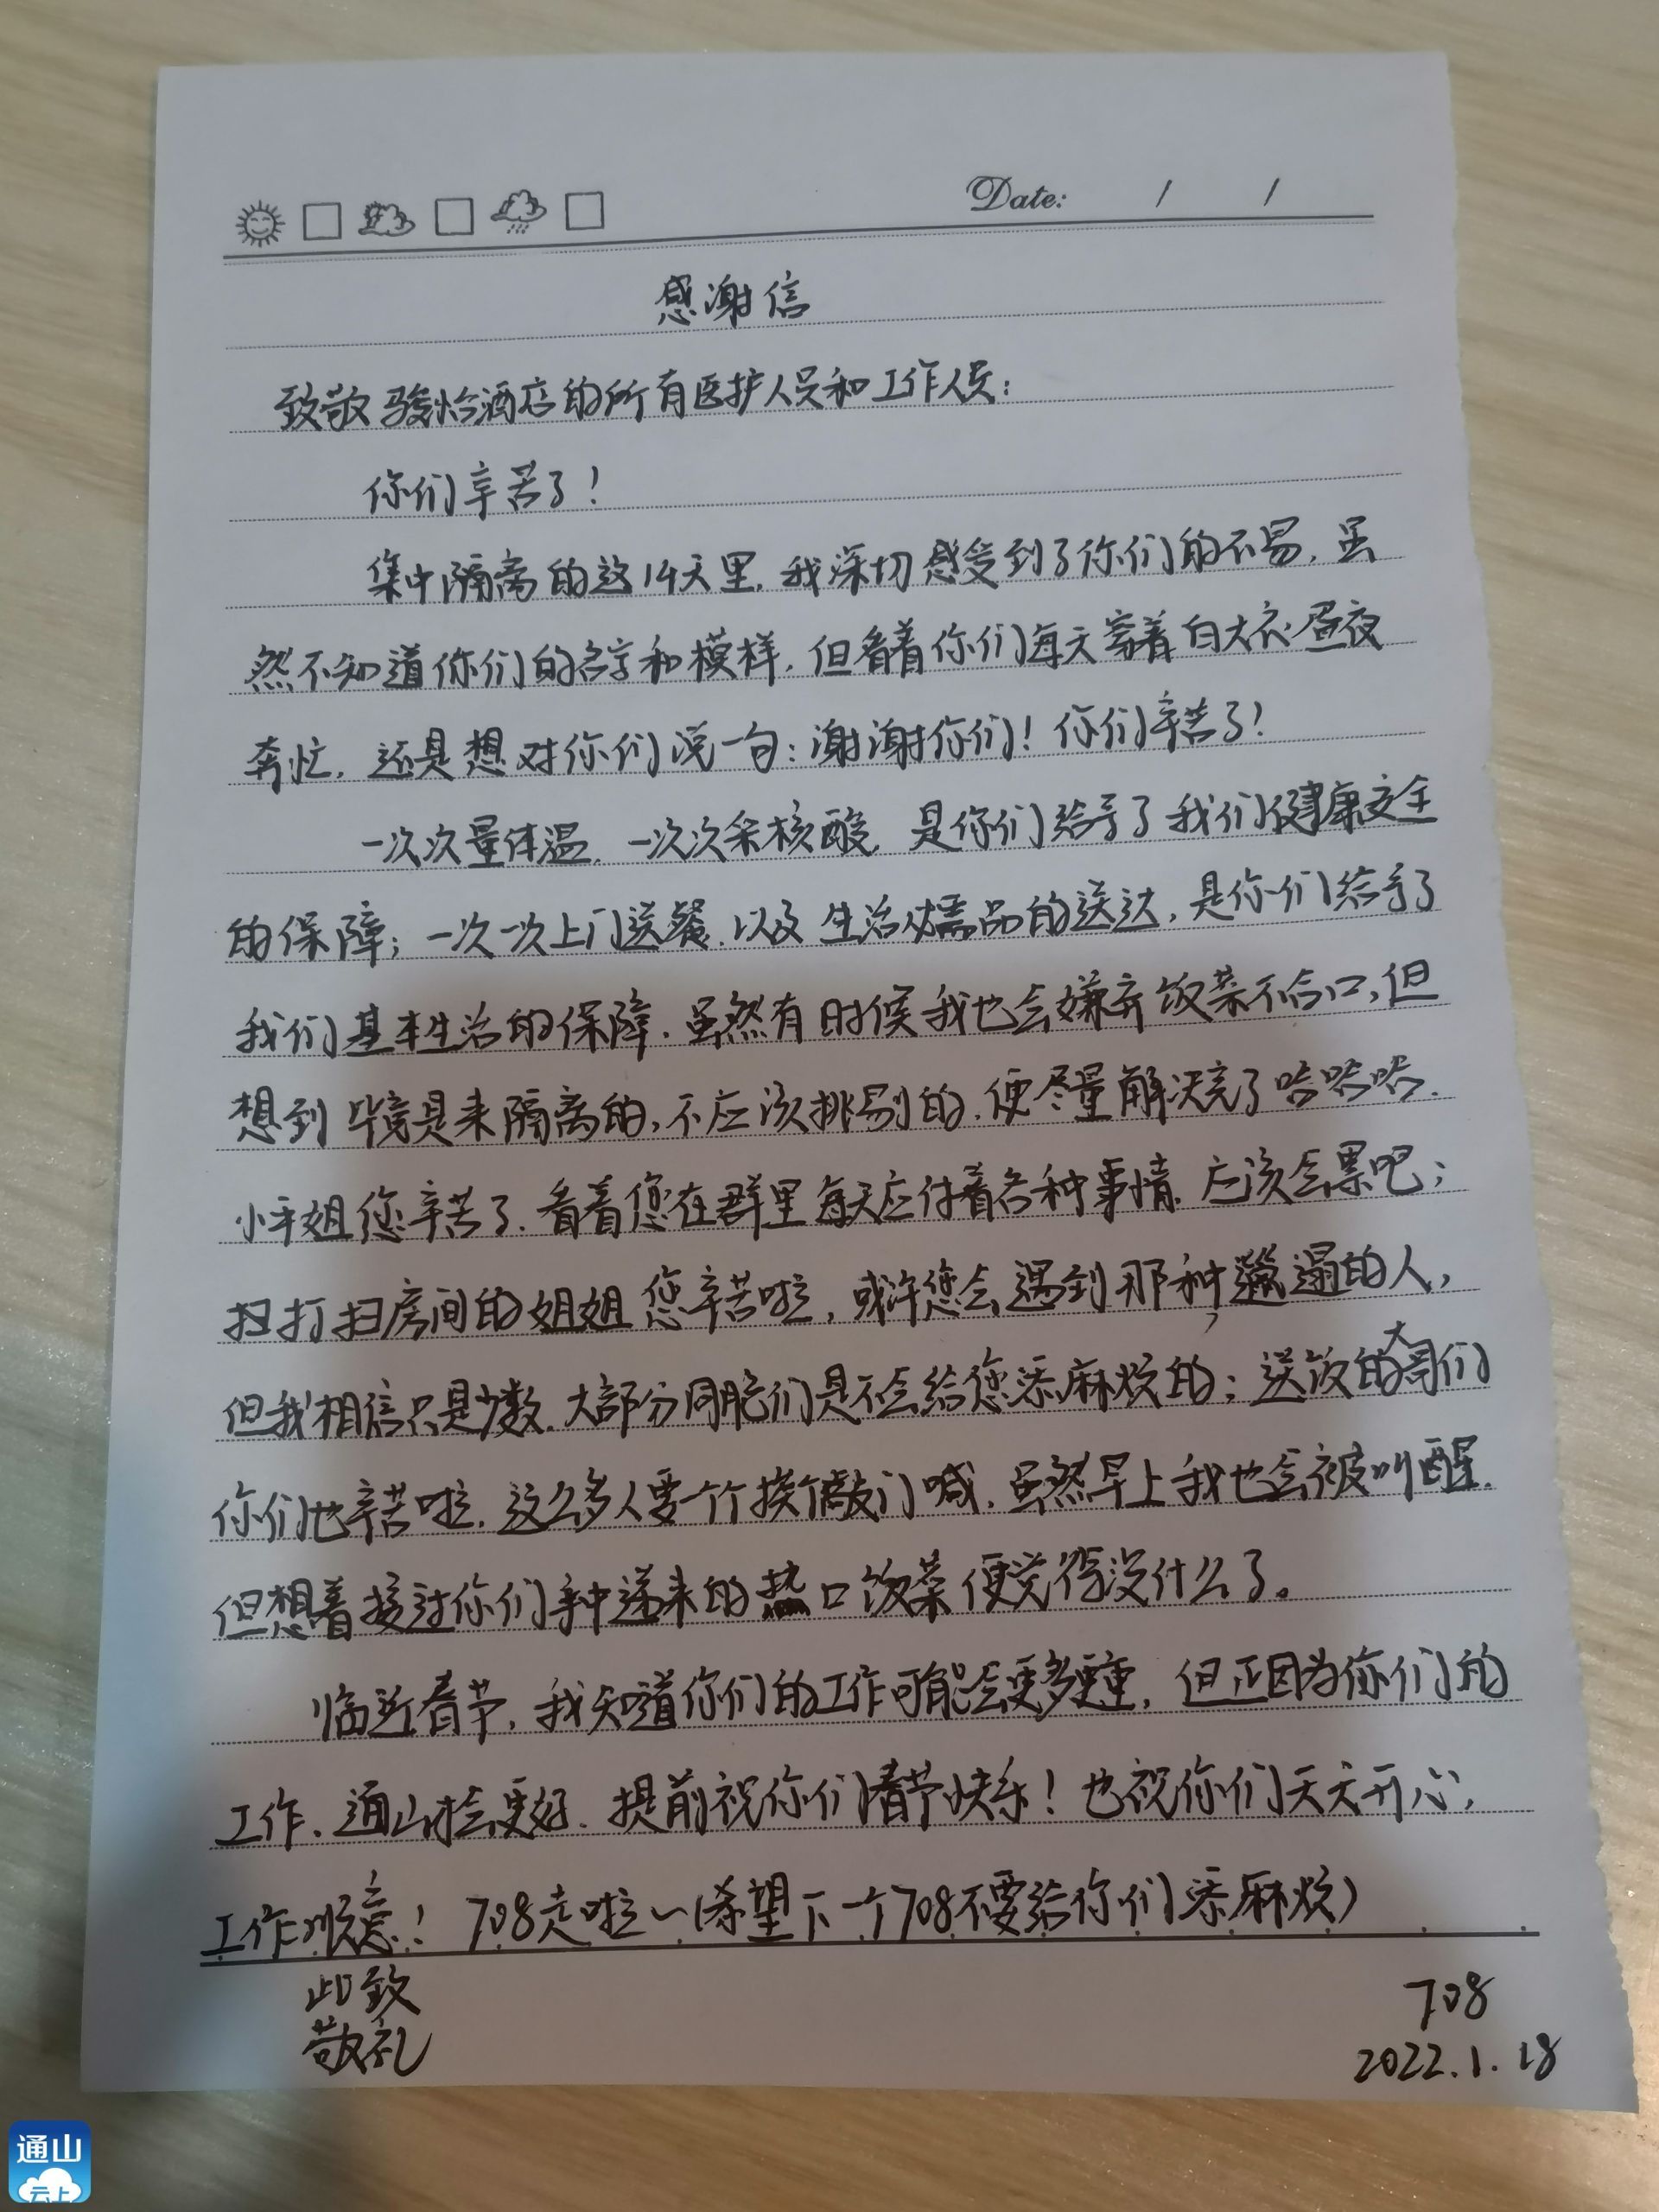 Date: / /
感谢信
致敬骏怡酒店的所有医护人员和工作人员:
你们辛苦了!
集中隔离的这14天里,我深切感受到了你们的不易,虽
然不知道你们的名字和模样,但看着你们每天穿着白大衣昼夜
奔忙,还是想对你们说一句:谢谢你们!你们辛苦了!
一次次量体温,一次次采核酸,是你们给予了我们健康安全
的保障;一次一次上门送餐,以及生活必需品的送达,是你们给予了
我们基本生活的保障.虽然有时候我也会嫌弃饭菜不合口,但
想到毕竟是来隔离的,不应该挑剔的,便尽量解决完了哈哈哈.
小平姐您辛苦了.看着您在群里每天应付着各种事情,应该会累吧;
打扫房间的姐姐您辛苦啦,或许您会遇到那种邋遢的人,
但我相信只是少数,大部分同胞们是不会给您添麻烦的;送饭的大哥们
你们也辛苦啦,这么多人要一个个挨个敲门喊,虽然早上我也会被叫醒,
但想着接过你们手中递来的热口饭菜便觉得没什么了。
临近春节,我知道你们的工作可能会更多更重,但正因为你们的
工作,通山才会更好.提前祝你们春节快乐!也祝你们天天开心,
工作顺意!708走啦~(希望下一个708不要给你们添麻烦)
此致
敬礼
708
2022.1.18
通山
云上